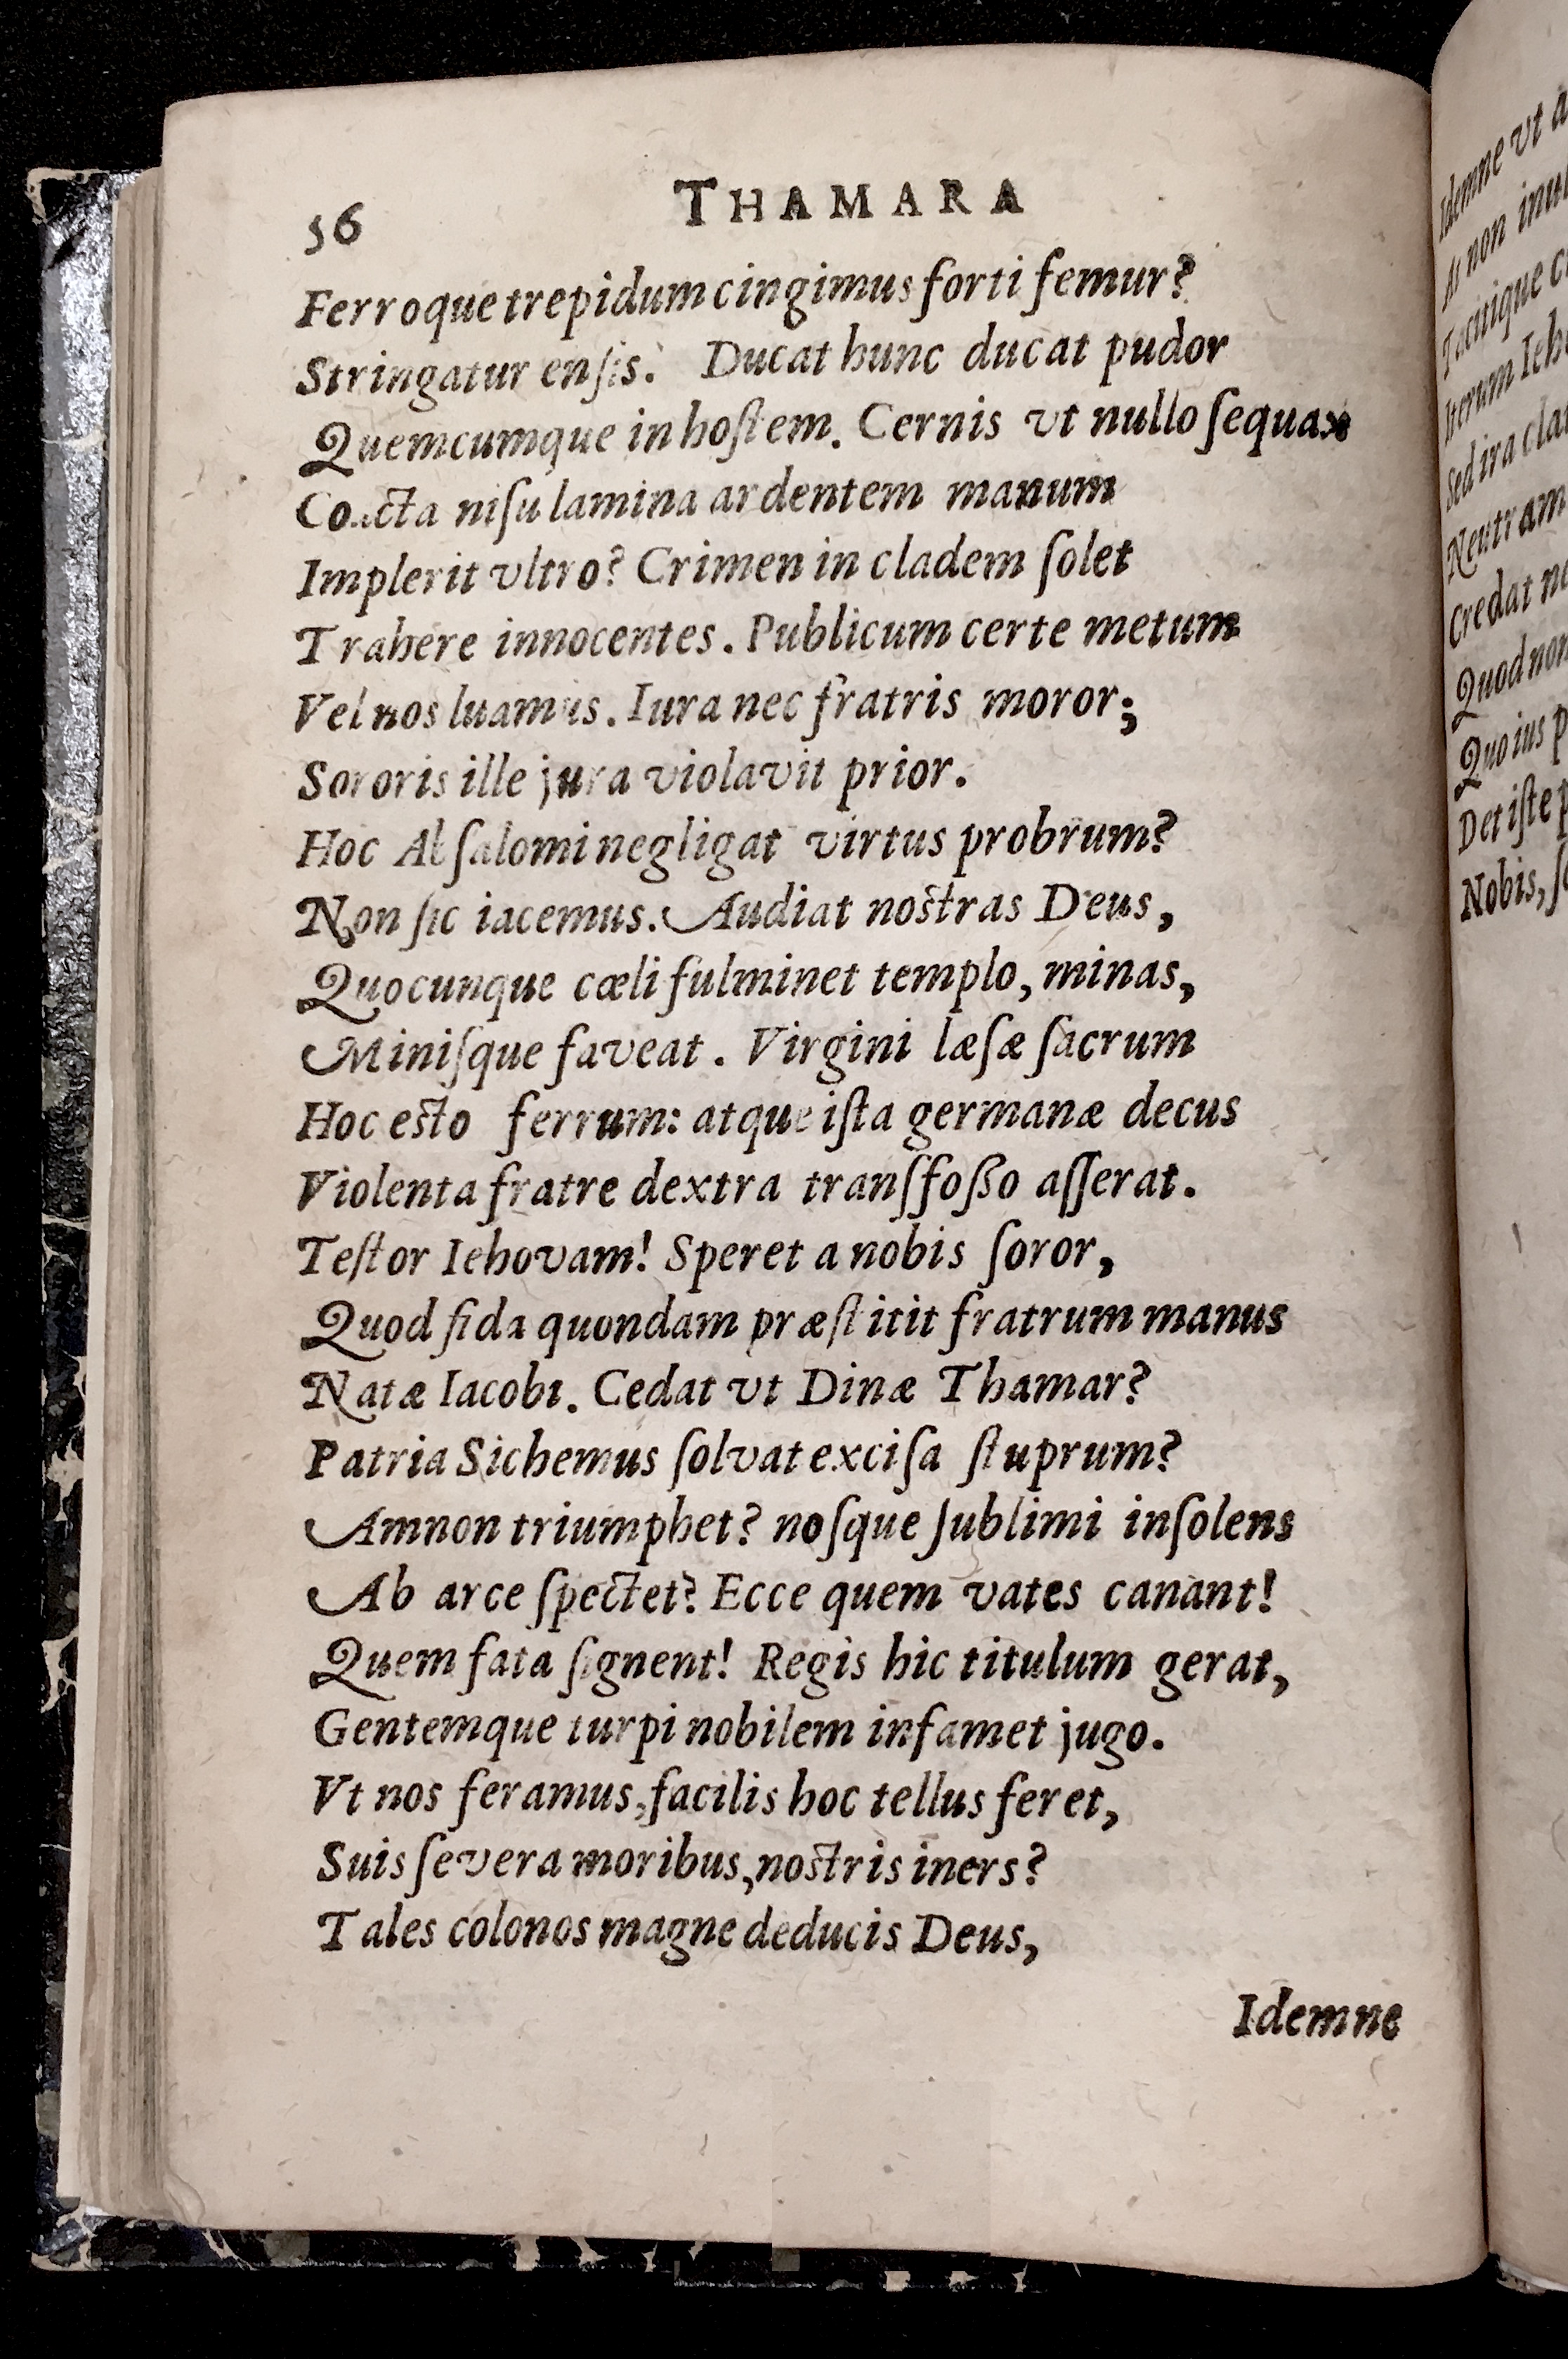 56 THAMARA
Ferroque trepidum cingimus forti femur?
Stringatur enſis. Ducat hunc ducat pudor
Quemcumque in hoſtem. Cernis vt nullo ſequax
Coacta niſu lamina ardentem manum
Implerit vltro? Crimen in cladem ſolet
Trahere innocentes. Publicum certe metum
Vel nos luamus. Iura nec fratris moror;
Sororis ille jura violavit prior.
Hoc Abſalomi negligat virtus probrum?
Non ſic iacemus. Audiat noſtras Deus,
Quocunque cæli fulminet templo, minas,
Miniſque faveat. Virgini læſæ ſacrum
Hoc eſto ferrum: atque iſta germanæ decus
Violenta fratre dextra tranſfoſſo aſſerat.
Teſtor Iehovam! Speret a nobis ſoror,
Quod fida quondam præſtitit fratrum manus
Natæ Iacobi. Cedat vt Dinæ Thamar?
Patria Sichemus ſolvat exciſa ſtuprum?
Amnon triumphet? noſque ſublimi inſolens
Ab arce ſpectet? Ecce quem vates canant!
Quem fata ſignent! Regis hic titulum gerat,
Gentemque turpi nobilem infamet jugo.
Vt nos feramus, facilis hoc tellus feret,
Suis ſevera moribus, noſtris iners?
Tales colonos magne deducis Deus,
Idemne
Idemne vt
At non
Tacitique
Iterum
Sed ira
Neutram
Credat
Quod non
Quo ius
Det iſte
Nobis,